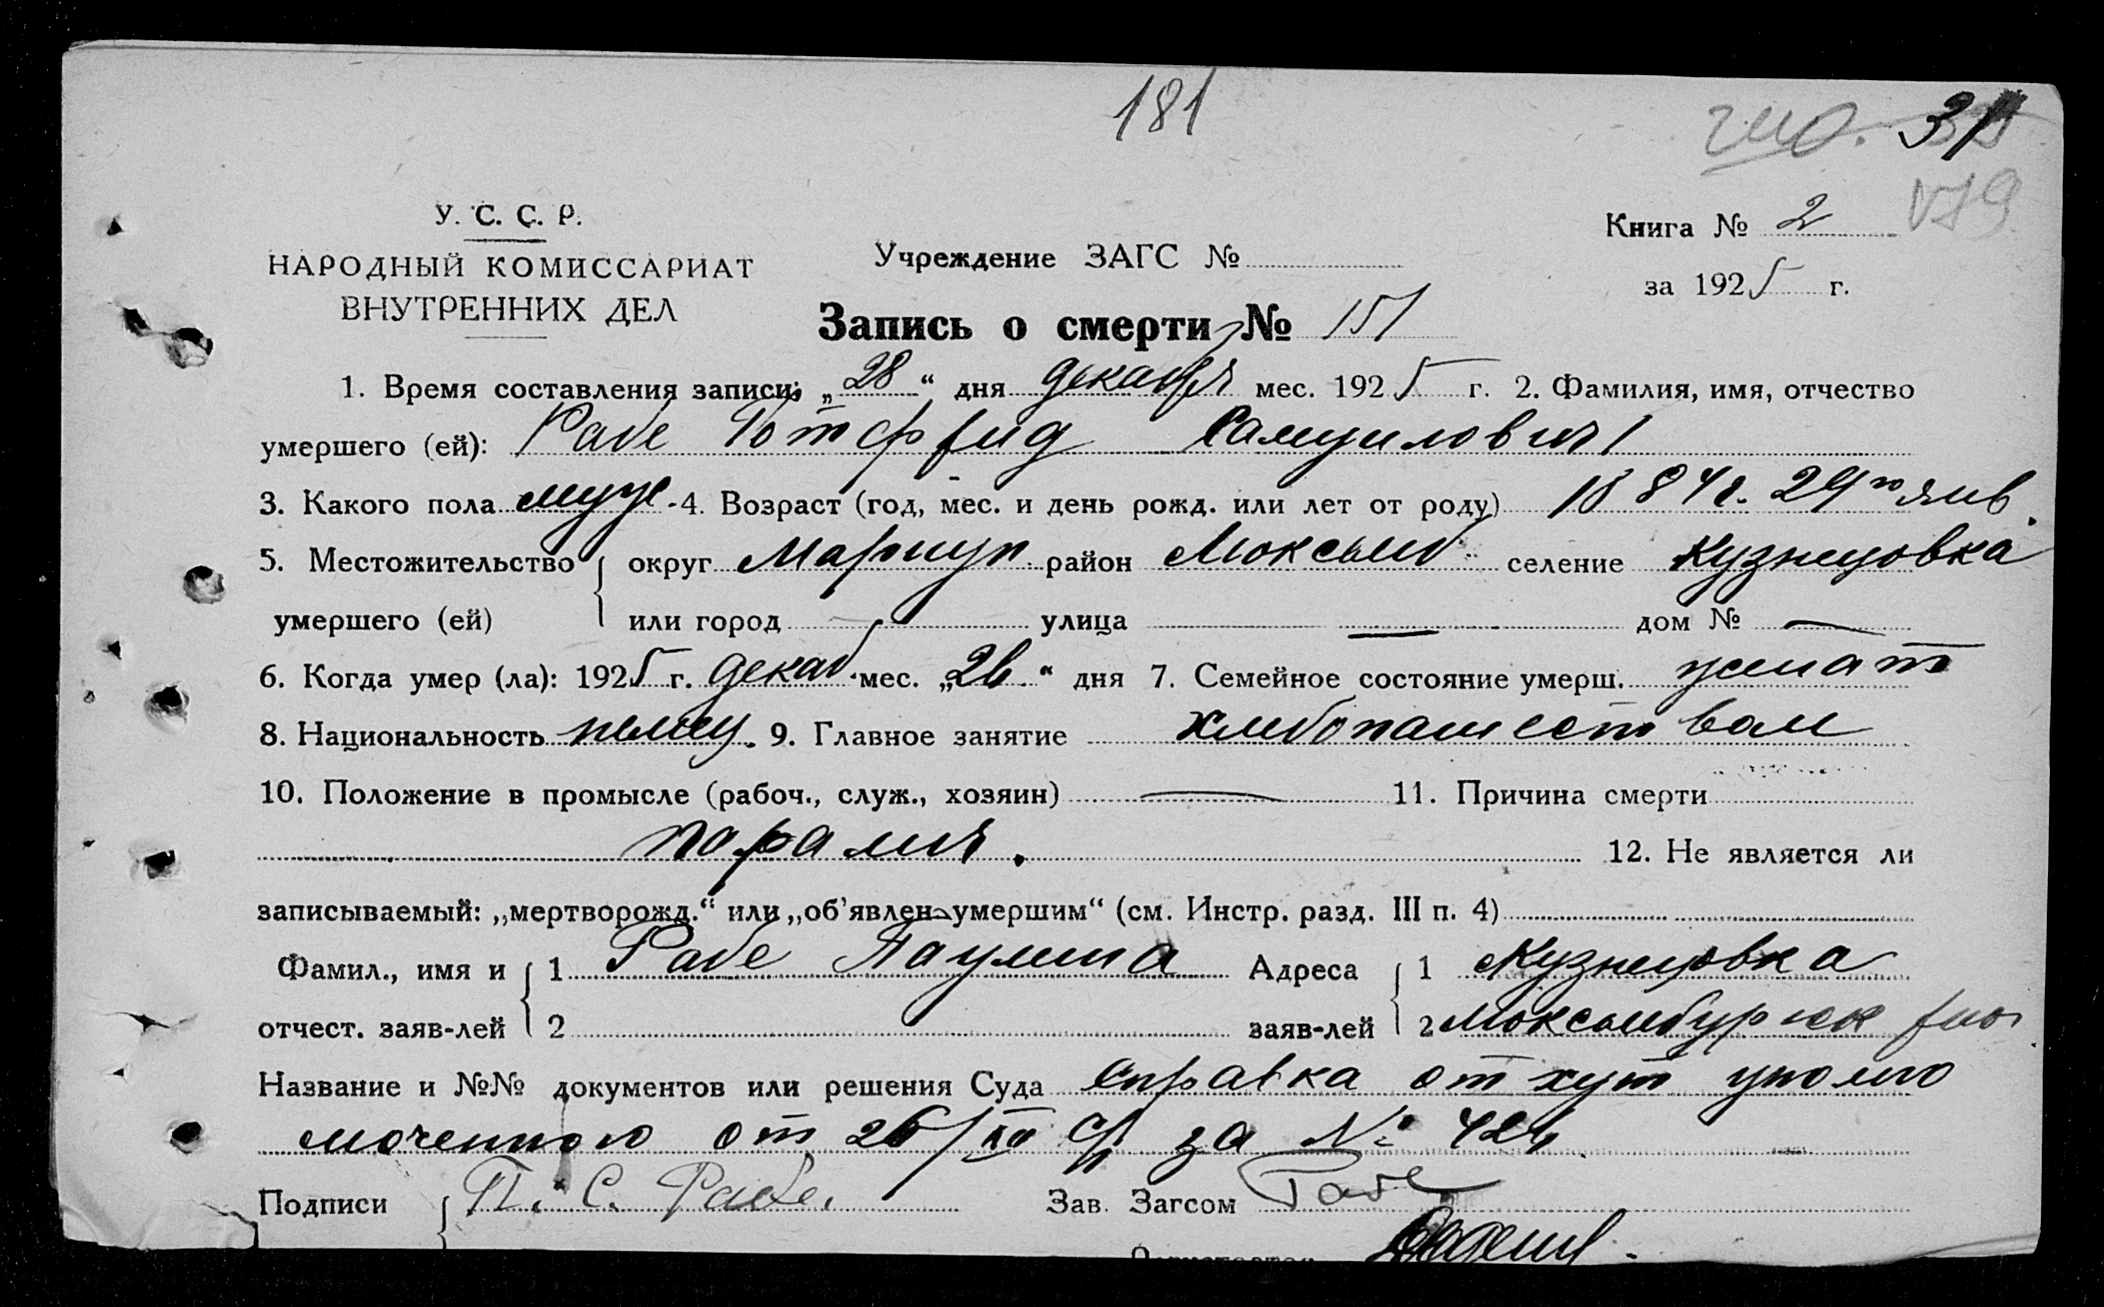 181
31
У. С. С. Р.
Книга № 2
НАРОДНЫЙ КОМИССАРИАТ
ВНУТРЕННИХ ДЕЛ
Учреждение ЗАГС №
за 1925 г.
Запись о смерти № 151
1. Время составления записи: „28“ дня декабря мес. 1925 г. 2. Фамилия, имя, отчество
умершего (ей): Рабе Готсфрид Самуилович
3. Какого пола муж. 4. Возраст (год, мес. и день рожд. или лет от роду) 1884 г. 29го янв.
5. Местожительство округ Мариуп. район Люксемб. селение Кузнецовка
умершего (ей) или город — улица — дом № —
6. Когда умер (ла): 1925 г. декаб. мес. „26“ дня 7. Семейное состояние умерш. женат
8. Национальность немец. 9. Главное занятие хлебопашеством
10. Положение в промысле (рабоч., служ., хозяин) — 11. Причина смерти
паралич. 12. Не является ли
записываемый: „мертворожд.“ или „об’явлен умершим“ (см. Инстр. разд. III п. 4)
Фамил., имя и 1 Рабе Паулина Адреса 1 Кузнецовка
отчест. заяв-лей 2 заяв-лей 2 Люксембург
Название и №№ документов или решения Суда Справка от хут уполно
моченного от 26/XII с/г за № 424
Подписи П. С. Рабе. Зав. Загсом Рабе